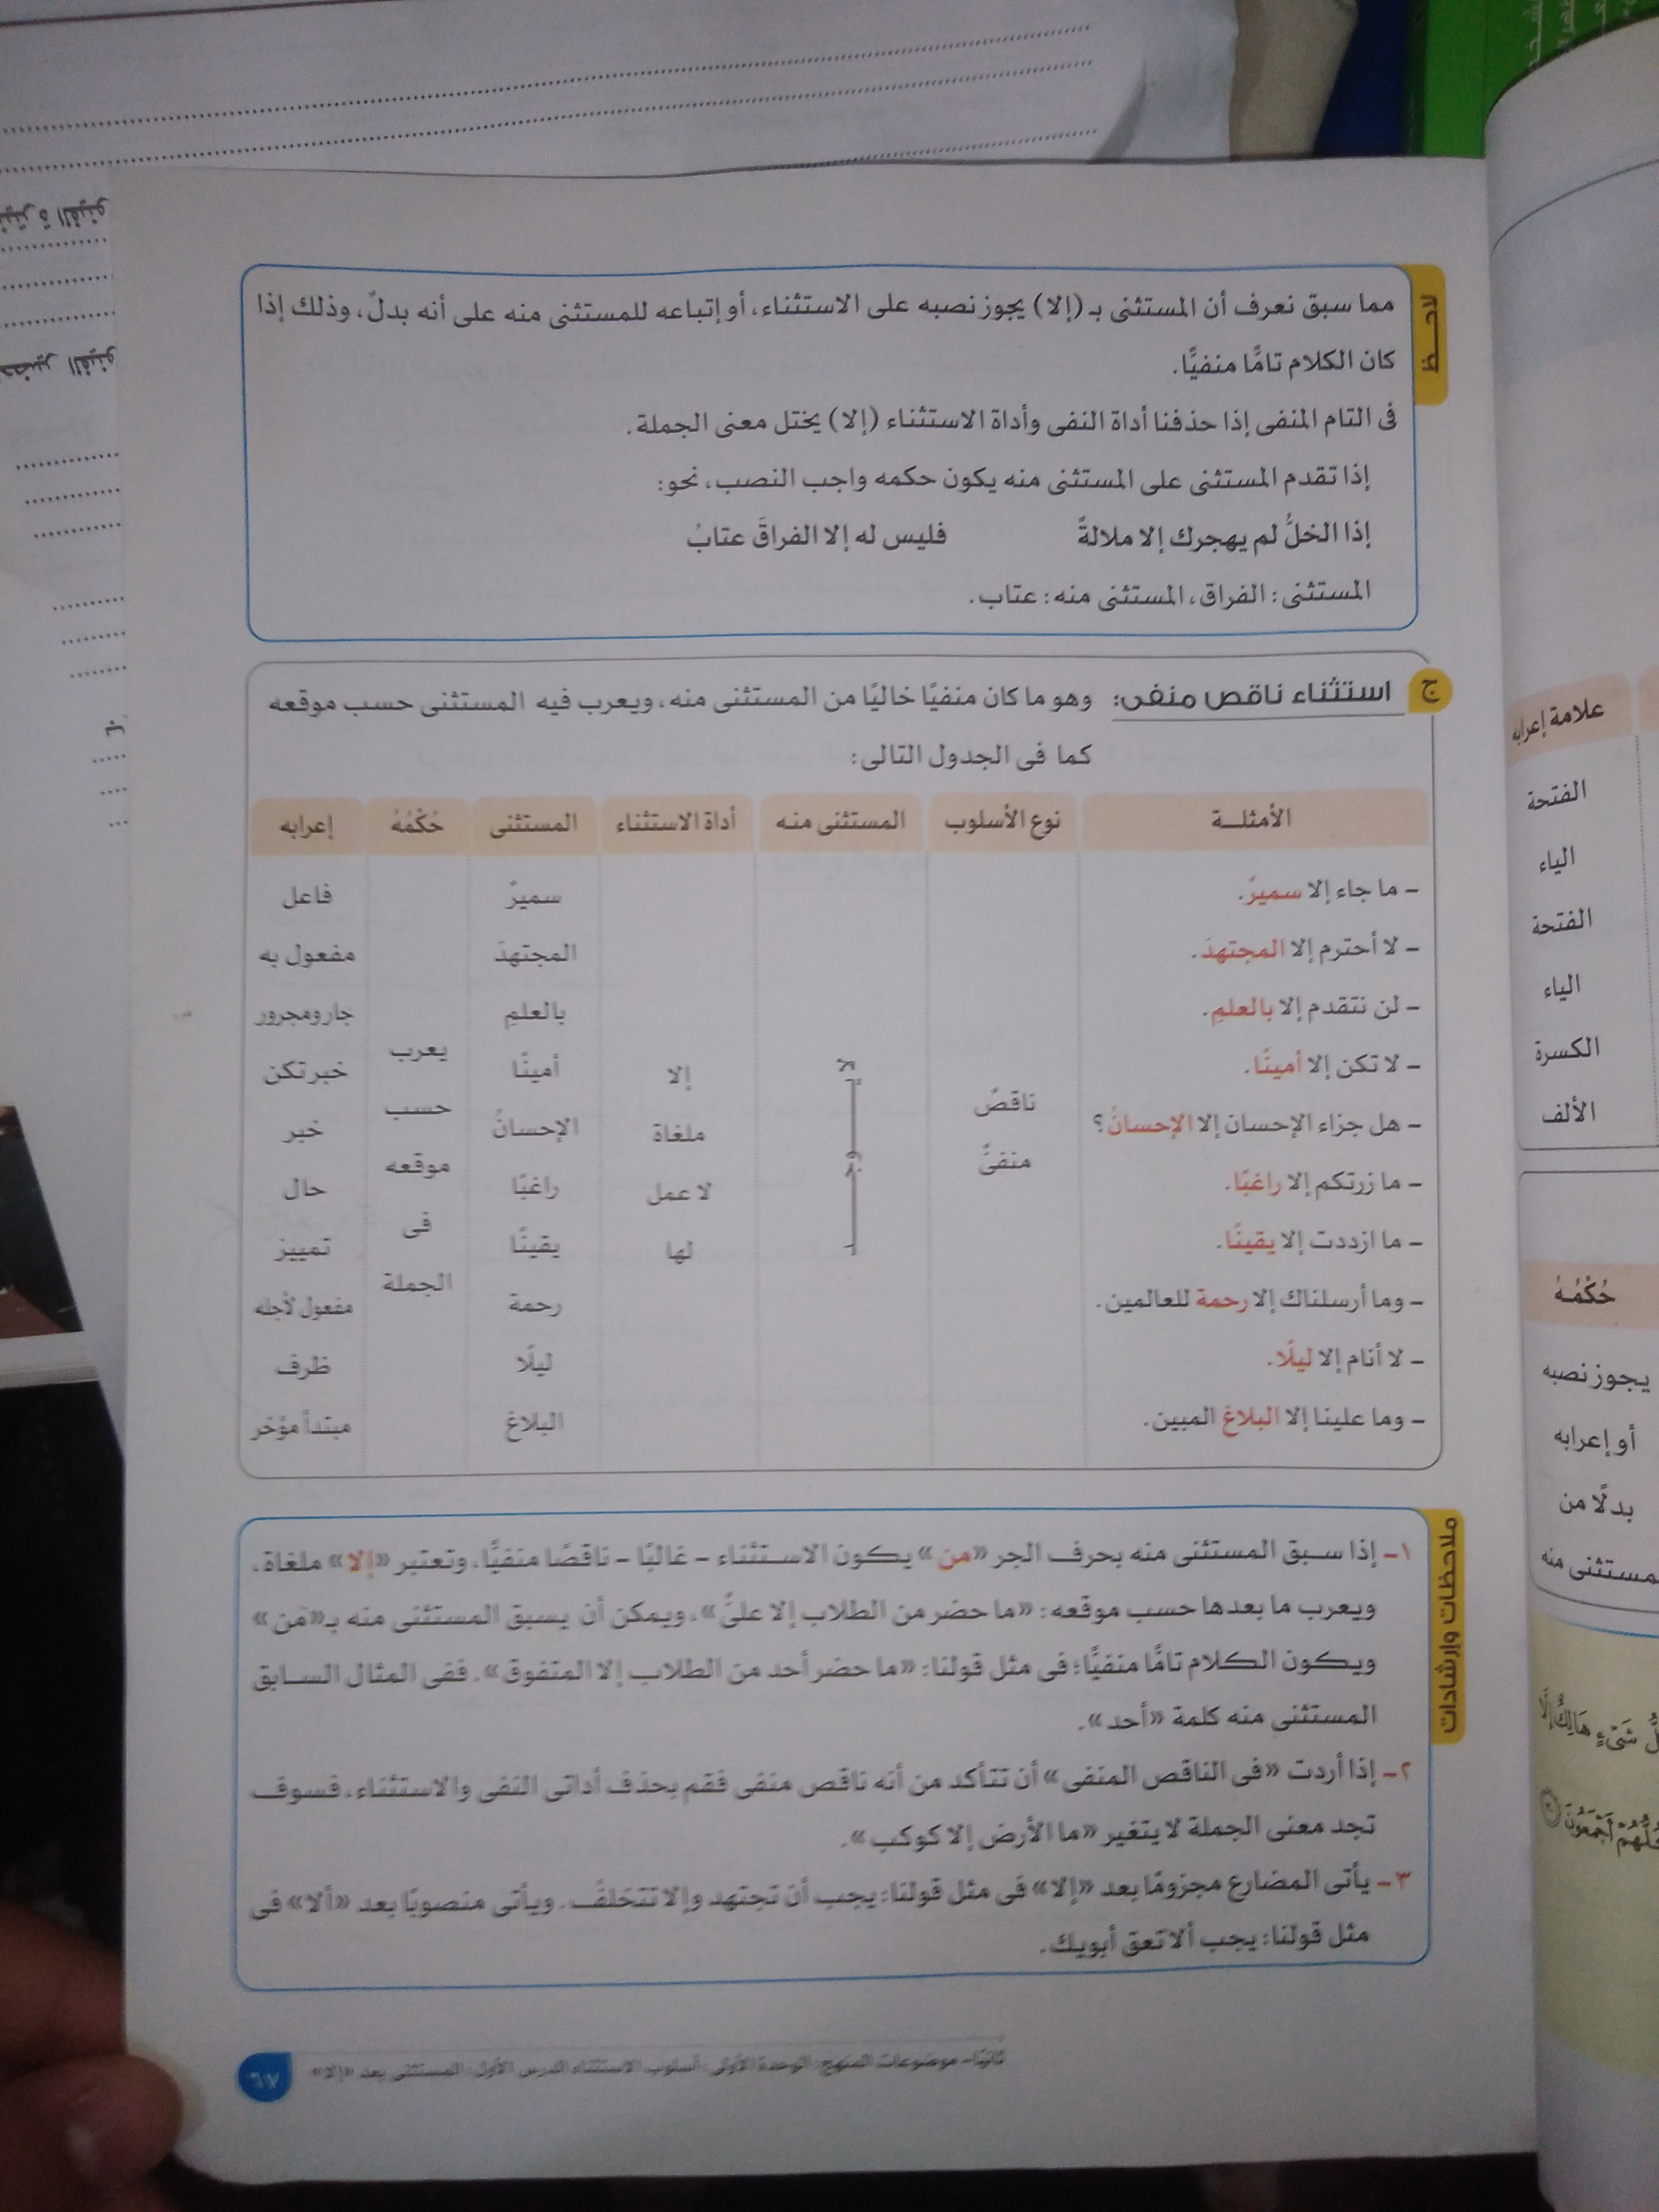 لاحــظ
مما سبق نعرف أن المستثنى بـ (إلا) يجوز نصبه على الاستثناء، أو إتباعه للمستثنى منه على أنه بدلٌ، وذلك إذا
كان الكلام تامًّا منفيًّا.
فى التام المنفى إذا حذفنا أداة النفى وأداة الاستثناء (إلا) يختل معنى الجملة.
إذا تقدم المستثنى على المستثنى منه يكون حكمه واجب النصب، نحو:
إذا الخلُّ لم يهجرك إلا ملالةً فليس له إلا الفراقَ عتابُ
المستثنى: الفراق، المستثنى منه: عتاب.
ج استثناء ناقص منفى: وهو ما كان منفيًا خاليًا من المستثنى منه، ويعرب فيه المستثنى حسب موقعه
كما فى الجدول التالى:
الأمثلــة نوع الأسلوب المستثنى منه أداة الاستثناء المستثنى حُكْمُهُ إعرابه
- ما جاء إلا سميرٌ. سميرٌ فاعل
- لا أحترم إلا المجتهدَ. المجتهدَ مفعول به
- لن نتقدم إلا بالعلمِ. بالعلمِ جار ومجرور
- لا تكن إلا أمينًا. ناقصٌ منفىٌّ لا يوجد إلا ملغاة لا عمل لها أمينًا يعرب حسب موقعه فى الجملة خبر تكن
- هل جزاء الإحسان إلا الإحسانُ؟ الإحسانُ خبر
- ما زرتكم إلا راغبًا. راغبًا حال
- ما ازددت إلا يقينًا. يقينًا تمييز
- وما أرسلناك إلا رحمة للعالمين. رحمة مفعول لأجله
- لا أنام إلا ليلًا. ليلًا ظرف
- وما علينا إلا البلاغ المبين. البلاغ مبتدأ مؤخر
ملاحظات وإرشادات
١- إذا سبق المستثنى منه بحرف الجر «من» يكون الاستثناء - غالبًا - ناقصًا منفيًّا، وتعتبر «إلا» ملغاة،
ويعرب ما بعدها حسب موقعه: «ما حضر من الطلاب إلا علىٌّ»، ويمكن أن يسبق المستثنى منه بـ«مَن»
ويكون الكلام تامًّا منفيًّا؛ فى مثل قولنا: «ما حضر أحد من الطلاب إلا المتفوق». ففى المثال السابق
المستثنى منه كلمة «أحد».
٢- إذا أردت «فى الناقص المنفى» أن تتأكد من أنه ناقص منفى فقم بحذف أداتى النفى والاستثناء، فسوف
تجد معنى الجملة لا يتغير «ما الأرض إلا كوكب».
٣- يأتى المضارع مجزومًا بعد «إلا» فى مثل قولنا: يجب أن تجتهد وإلا تتخلفْ. ويأتى منصوبًا بعد «ألا» فى
مثل قولنا: يجب ألا تعق أبويك.
ثانيًا- موضوعات المنهج: الوحدة الأولى: أسلوب الاستثناء الدرس الأول: المستثنى بعد «إلا»
٦٧
علامة إعرابه
الفتحة
الياء
الفتحة
الياء
الكسرة
الألف
حُكْمُهُ
يجوز نصبه
أو إعرابه
بدلًا من
شَىْءٍ هَالِكٌ إِلَّا
أَجْمَعُونَ